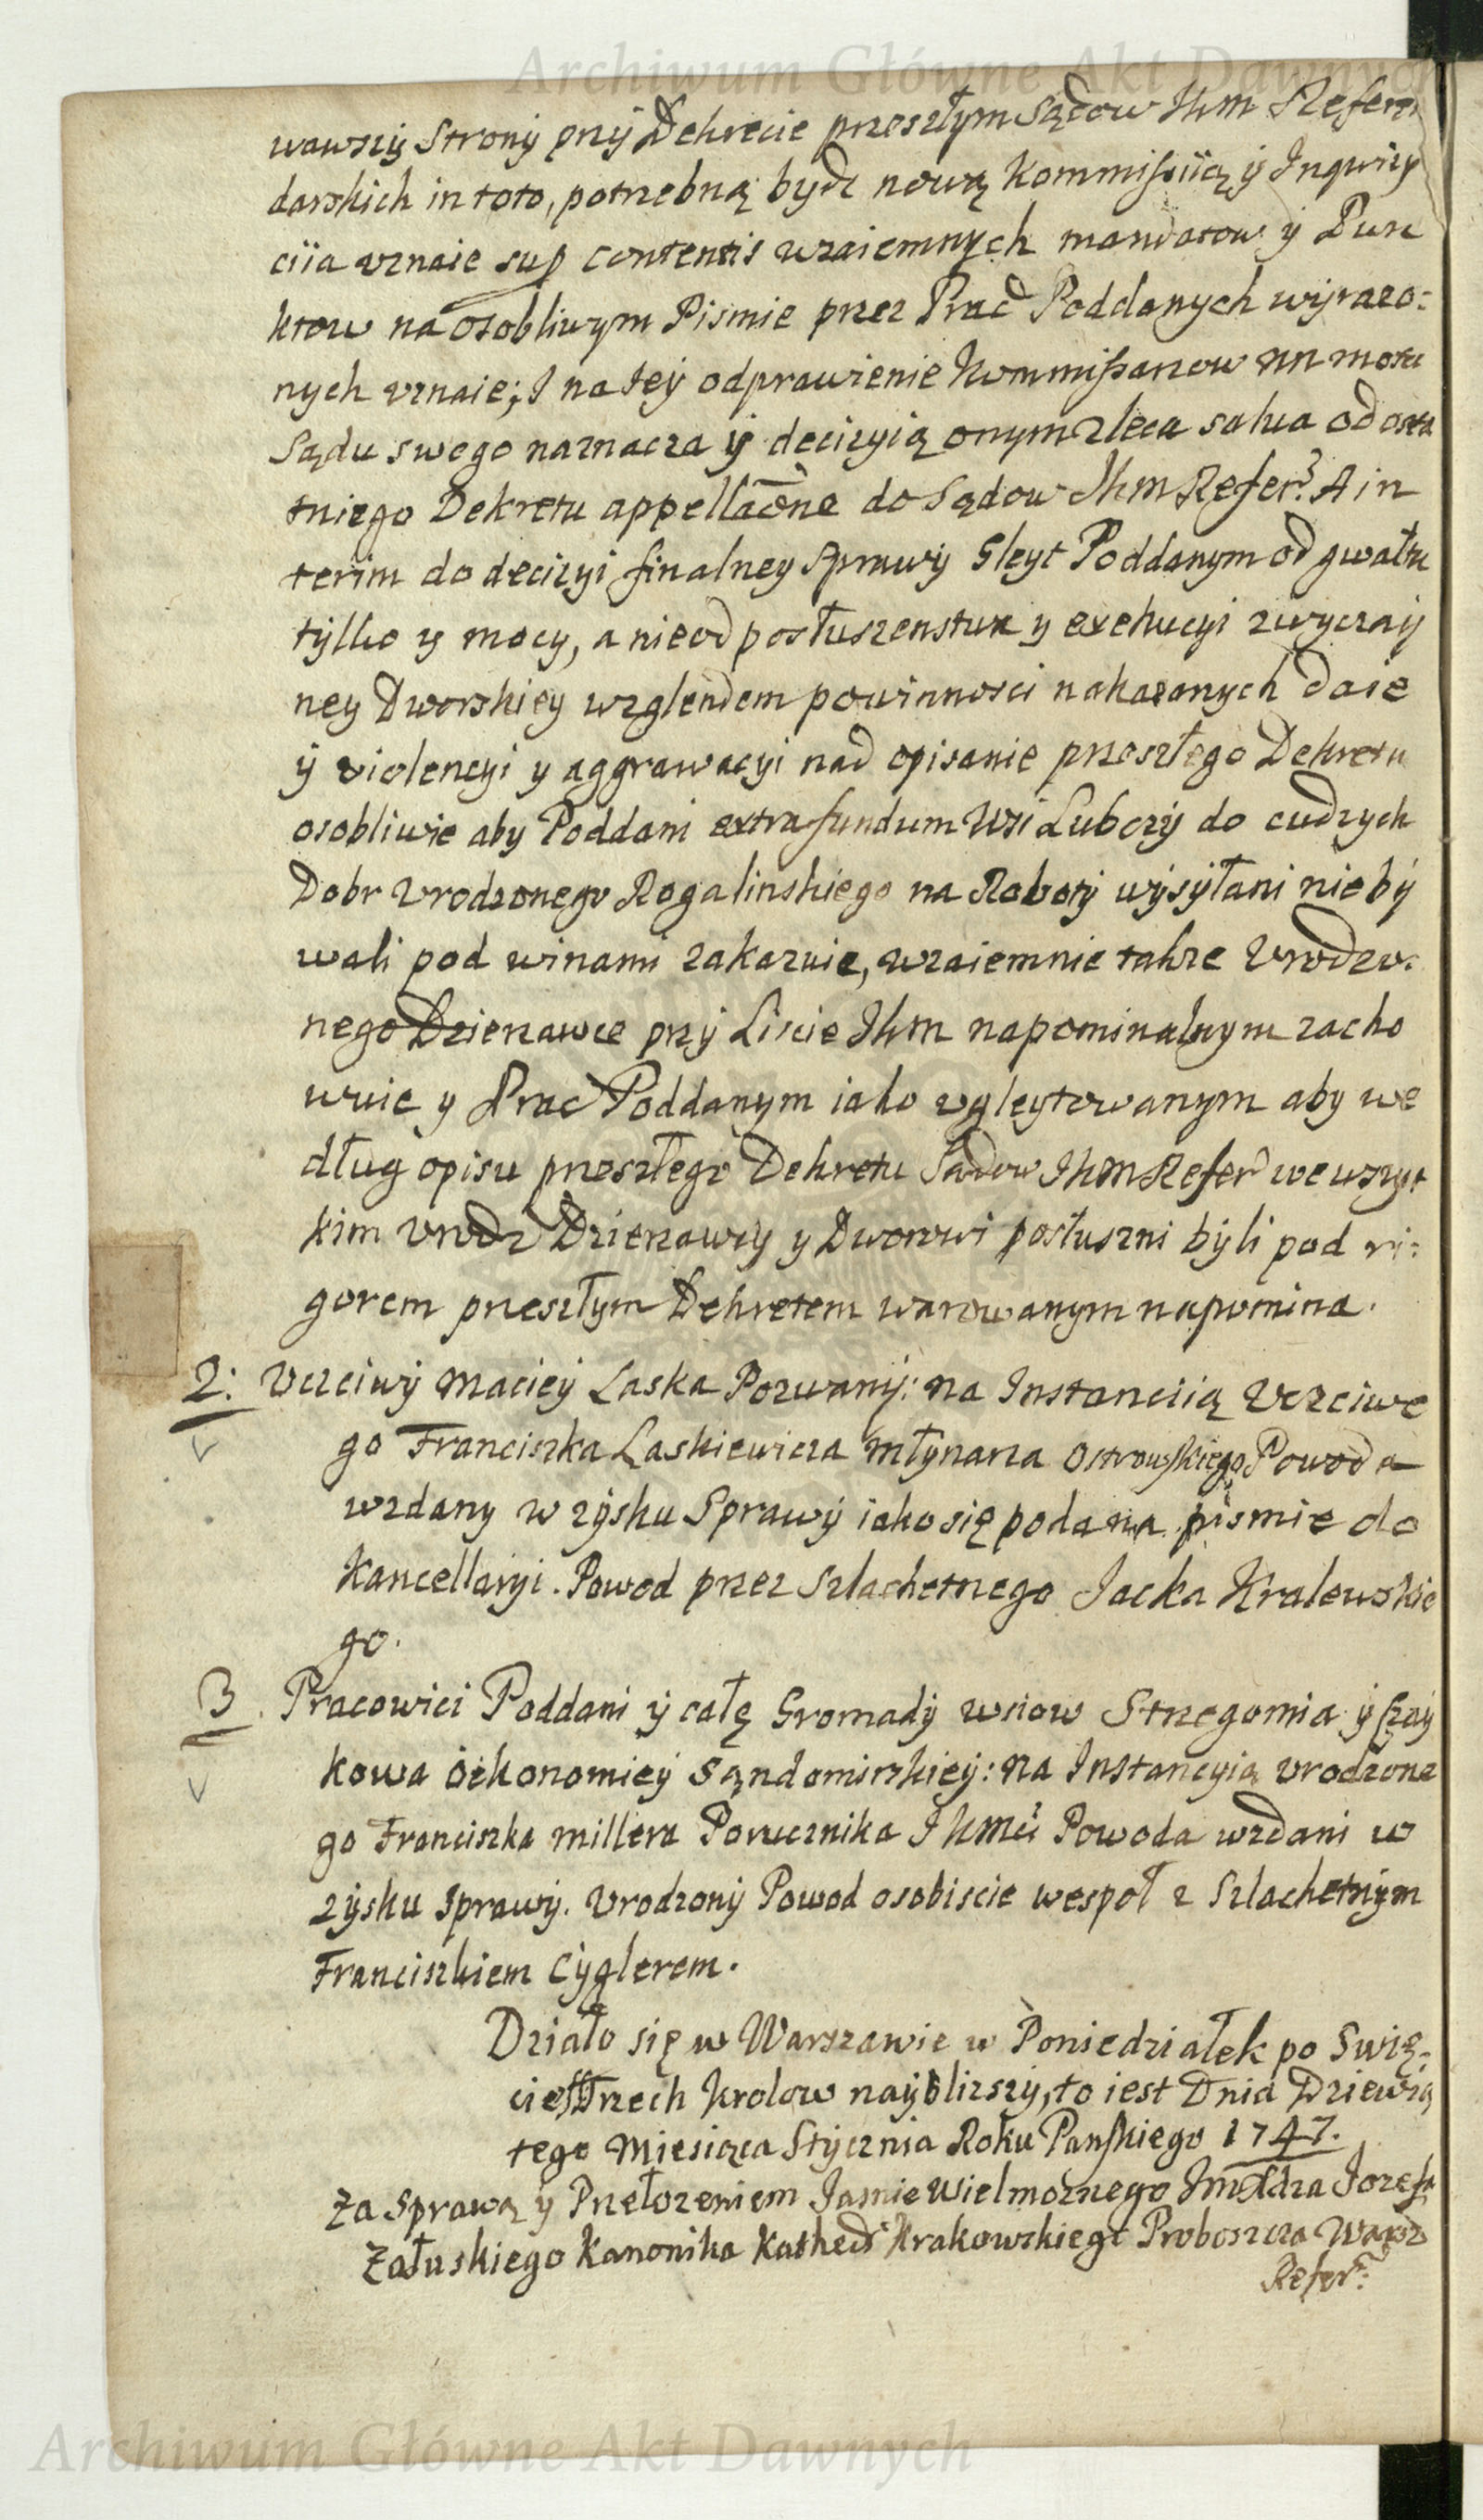 Archiwum Główne Akt Dawnych
wawszÿ Stronÿ przÿ Dekrecie przeszłym Sądow JKM Referen
darskich in toto, potrzebną bydz nową Kommissiią ÿ Inqwizy
ciia vznaie sup contentis wzaiemnych mandatow y Pun
ktow na osobliwym Pismie przez Prac Poddanych wÿrazo:
nych vznaie; J na Jeÿ odprawienie Kommissarzow nn mocą
Sądu swego naznacza ÿ decizyią onym zleca salva od osta
tniego Dekretu appellaōne do Sądow JKM Refer: A in
terim do decizyi finalney Sprawÿ Gleyt Poddanym od gwałtu
tÿlko y mocy, a nie od posłuszenstwa y exekucyi zwyczaÿ
ney Dworskiey wzglendem powinnosci nakazanych daie
ÿ violencyi y aggrawacyi nad opisanie przeszłego Dekretu
osobliwie aby Poddani extra fundum Wsi Lubczÿ do cudzych
Dobr Vrodzonego Rogalinskiego na Robotÿ wÿsÿłani nie bÿ
wali pod winami zakazuie, wzaiemnie takze Vrodzo:
nego Dzierzawce przÿ Liscie JKM napominalnym zacho
wuie y Prac Poddanym iako vgleytowanym aby we
dług opisu przeszłego Dekretu Sadow JKM Refer we wszyt
kim Vrodz Dzierzawcy y Dworowi posłuszni bÿli pod ri:
gorem przeszłym Dekretem warowanym napomina.
2: Vczciwÿ Macieÿ Laska Pozwanÿ: na Instanciią Vczciwe
go Franciszka Laskiewicza Młynarza Ostrowskiego Powoda
wzdany w zÿsku Sprawÿ iako się poda na pismie do
Kancellaryi. Powod przez Szlachetnego Jacka Kralewskie
go.
3 Pracowici Poddani ÿ całę Gromadÿ wsiow Strzegomia ÿ Czaÿ
kowa Oekonomieÿ Sandomirskieÿ: na Instancyią Vrodzone
go Franciszka Millera Porucznika JKMci Powoda wzdani w
zÿsku Sprawÿ. Vrodzonÿ Powod osobiscie wespoł z Szlachetnÿm
Franciszkiem Cÿglerem.
Działo się w Warszawie w Poniedziałek po Swię:
cie SS Trzech Krolow naÿblizszÿ, to iest Dnia Dziewią
tego Miesiąca Stÿcznia Roku Panskiego 1747.
Za Sprawą ÿ Przełozeniem Jasnie Wielmoznego Jm Xdza Jozefa
Załuskiego Kanonika Kathed Krakowskiego Proboszcza Warsz
Refer:
Archiwum Główne Akt Dawnych